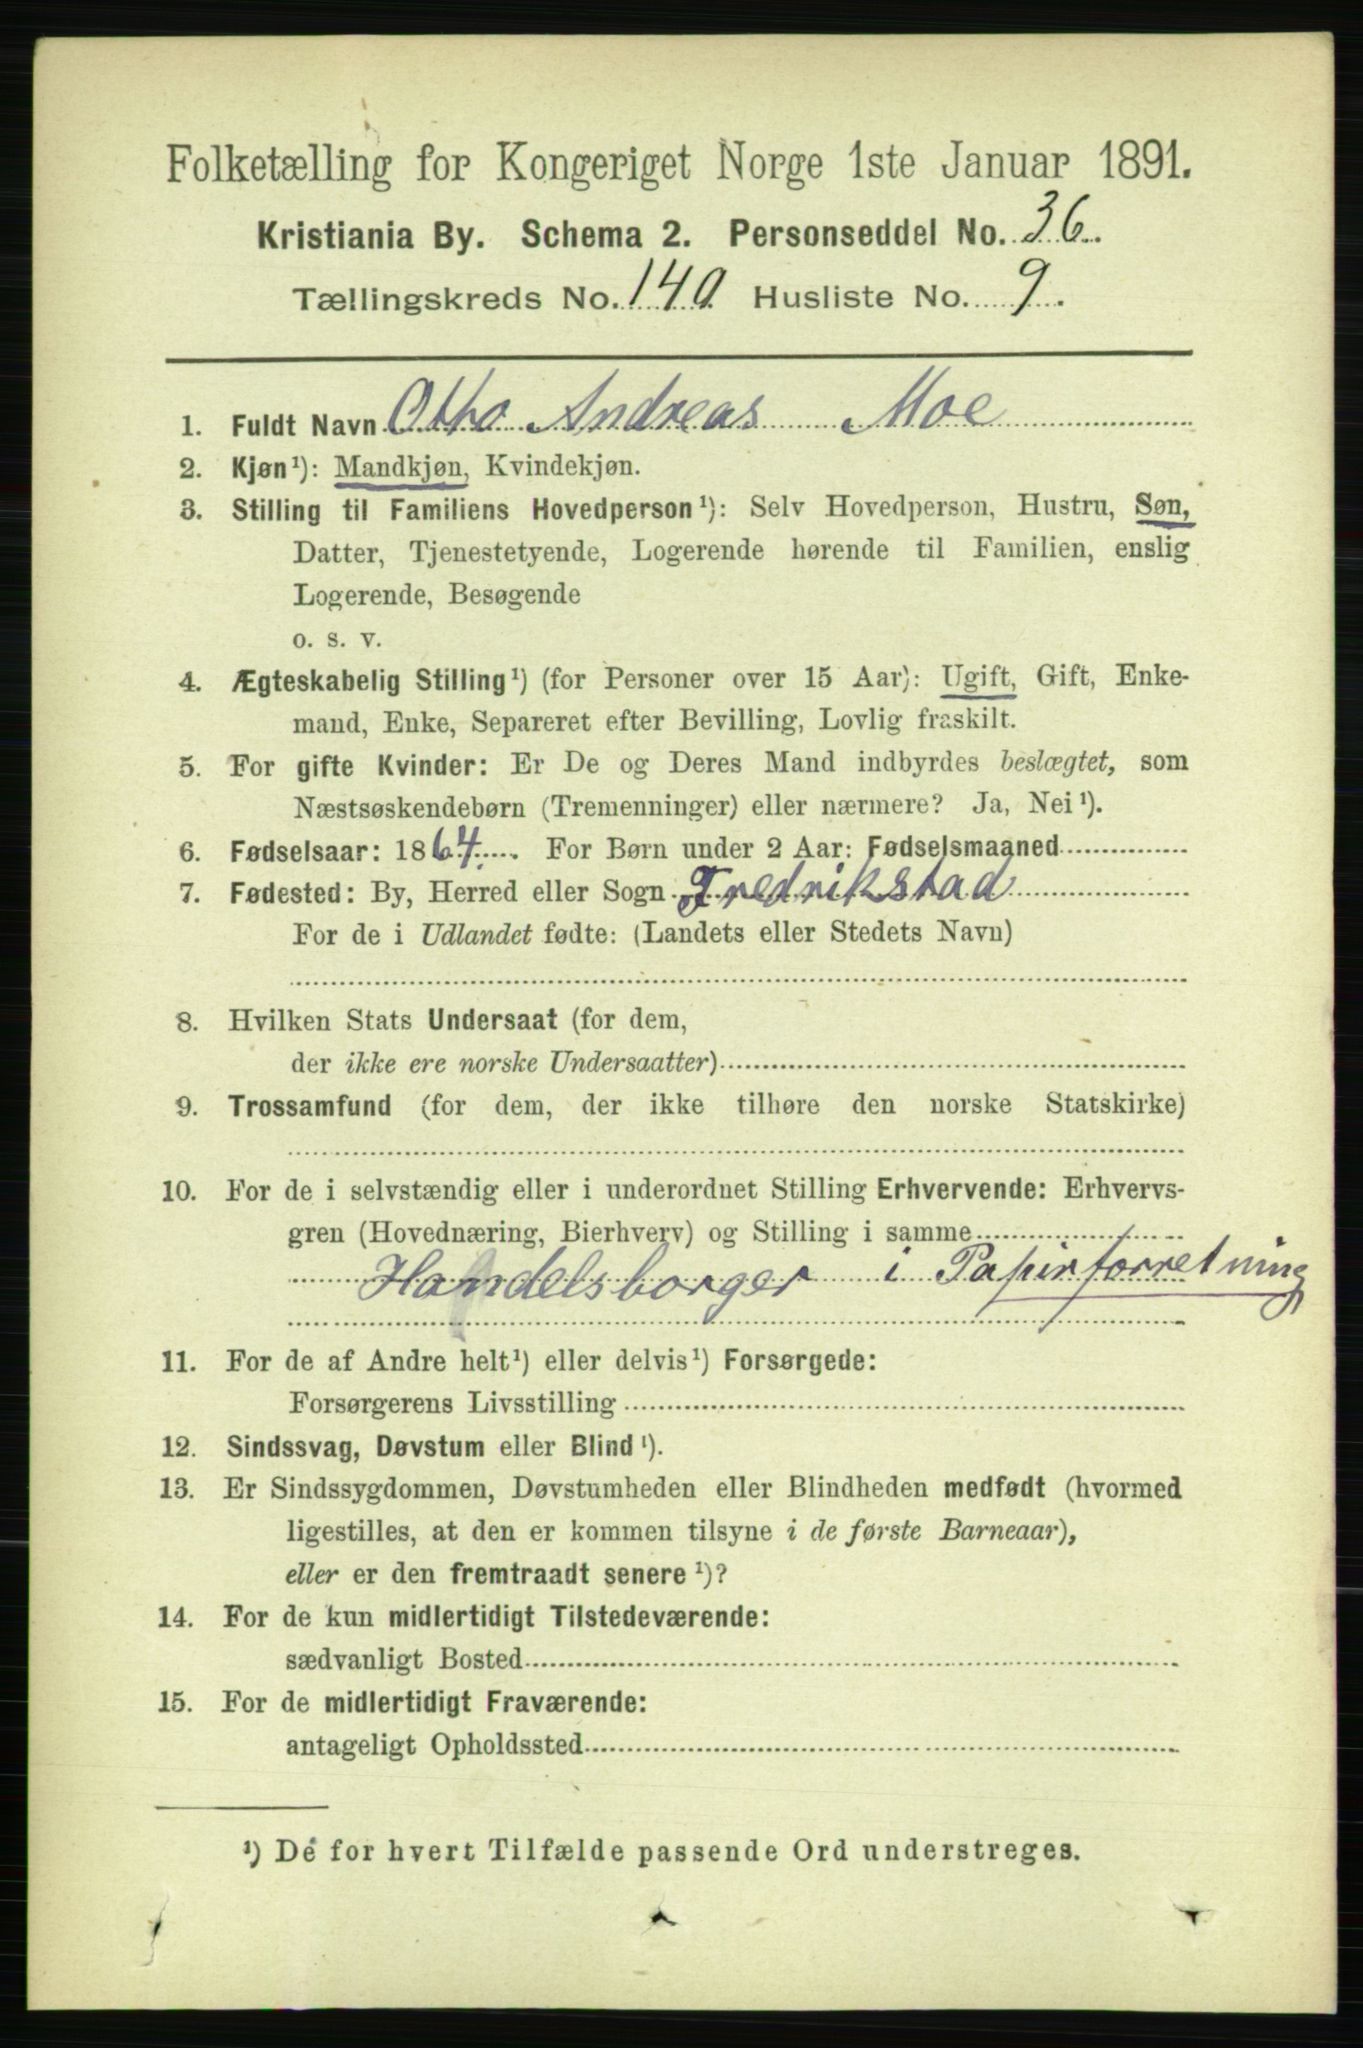 Folketælling for Kongeriget Norge 1ste Januar 1891.
Kristiania By. Schema 2. Personseddel No. 36.
Tællingskreds No. 140 Husliste No. 9.
1. Fuldt Navn Otto Andreas Moe
2. Kjøn¹): Mandkjøn, Kvindekjøn.
3. Stilling til Familiens Hovedperson¹): Selv Hovedperson, Hustru, Søn,
Datter, Tjenestetyende, Logerende hørende til Familien, enslig
Logerende, Besøgende
o. s. v.
4. Ægteskabelig Stilling¹) (for Personer over 15 Aar): Ugift, Gift, Enke-
mand, Enke, Separeret efter Bevilling, Lovlig fraskilt.
5. For gifte Kvinder: Er De og Deres Mand indbyrdes beslægtet, som
Næstsøskendebørn (Tremenninger) eller nærmere? Ja, Nei¹).
6. Fødselsaar: 1864. For Børn under 2 Aar: Fødselsmaaned
7. Fødested: By, Herred eller Sogn Fredrikstad
For de i Udlandet fødte: (Landets eller Stedets Navn)
8. Hvilken Stats Undersaat (for dem,
der ikke ere norske Undersaatter)
9. Trossamfund (for dem, der ikke tilhøre den norske Statskirke)
10. For de i selvstændig eller i underordnet Stilling Erhvervende: Erhvervs-
gren (Hovednæring, Bierhverv) og Stilling i samme
Handelsborger i Papirforretning
11. For de af Andre helt¹) eller delvis¹) Forsørgede:
Forsørgerens Livsstilling
12. Sindssvag, Døvstum eller Blind¹).
13. Er Sindssygdommen, Døvstumheden eller Blindheden medfødt (hvormed
ligestilles, at den er kommen tilsyne i de første Barneaar),
eller er den fremtraadt senere¹)?
14. For de kun midlertidigt Tilstedeværende:
sædvanligt Bosted
15. For de midlertidigt Fraværende:
antageligt Opholdssted
¹) De for hvert Tilfælde passende Ord understreges.